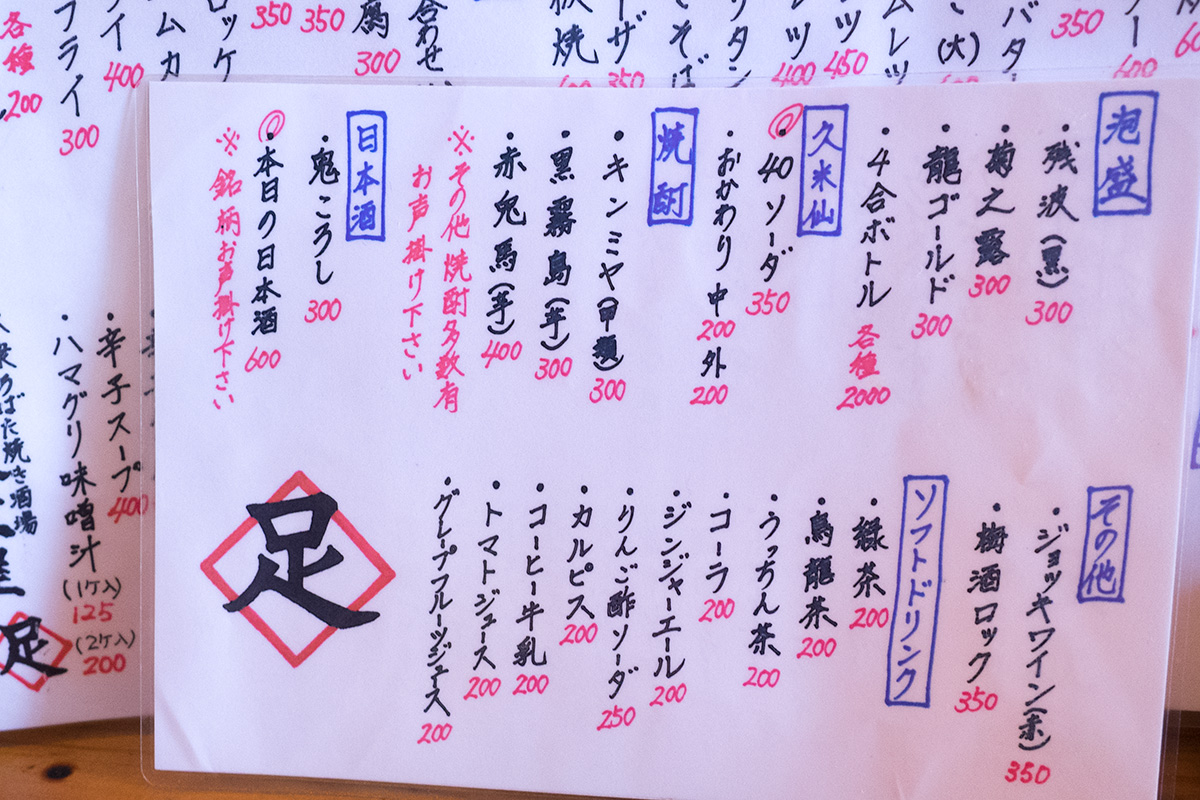 泡盛
・残波(黒) 300
・菊之露 300
・龍ゴールド 300
・4合ボトル 各種 2000
久米仙
・40ソーダ 350
・おかわり 中 200 外 200
焼酎
・キンミヤ(甲類) 300
・黒霧島(芋) 300
・赤兎馬(芋) 400
※その他焼酎多数有
お声掛け下さい
日本酒
・鬼ころし 300
・本日の日本酒 600
※銘柄お声掛け下さい
その他
・ジョッキワイン(赤) 350
・梅酒ロック 350
ソフトドリンク
・緑茶 200
・烏龍茶 200
・うっちん茶 200
・コーラ 200
・ジンジャーエール 200
・りんご酢ソーダ 250
・カルピス 200
・コーヒー牛乳 200
・トマトジュース 200
・グレープフルーツジュース 200
足
600
350
バター
(大)
450
400
350
焼
合わせ
300
350
350
ロッケ
ムカ
400
フライ 300
各種 200
・辛子スープ 400
・ハマグリ味噌汁
(1ケ入)
125
(2ケ入)
200
ろばた焼き酒場
足